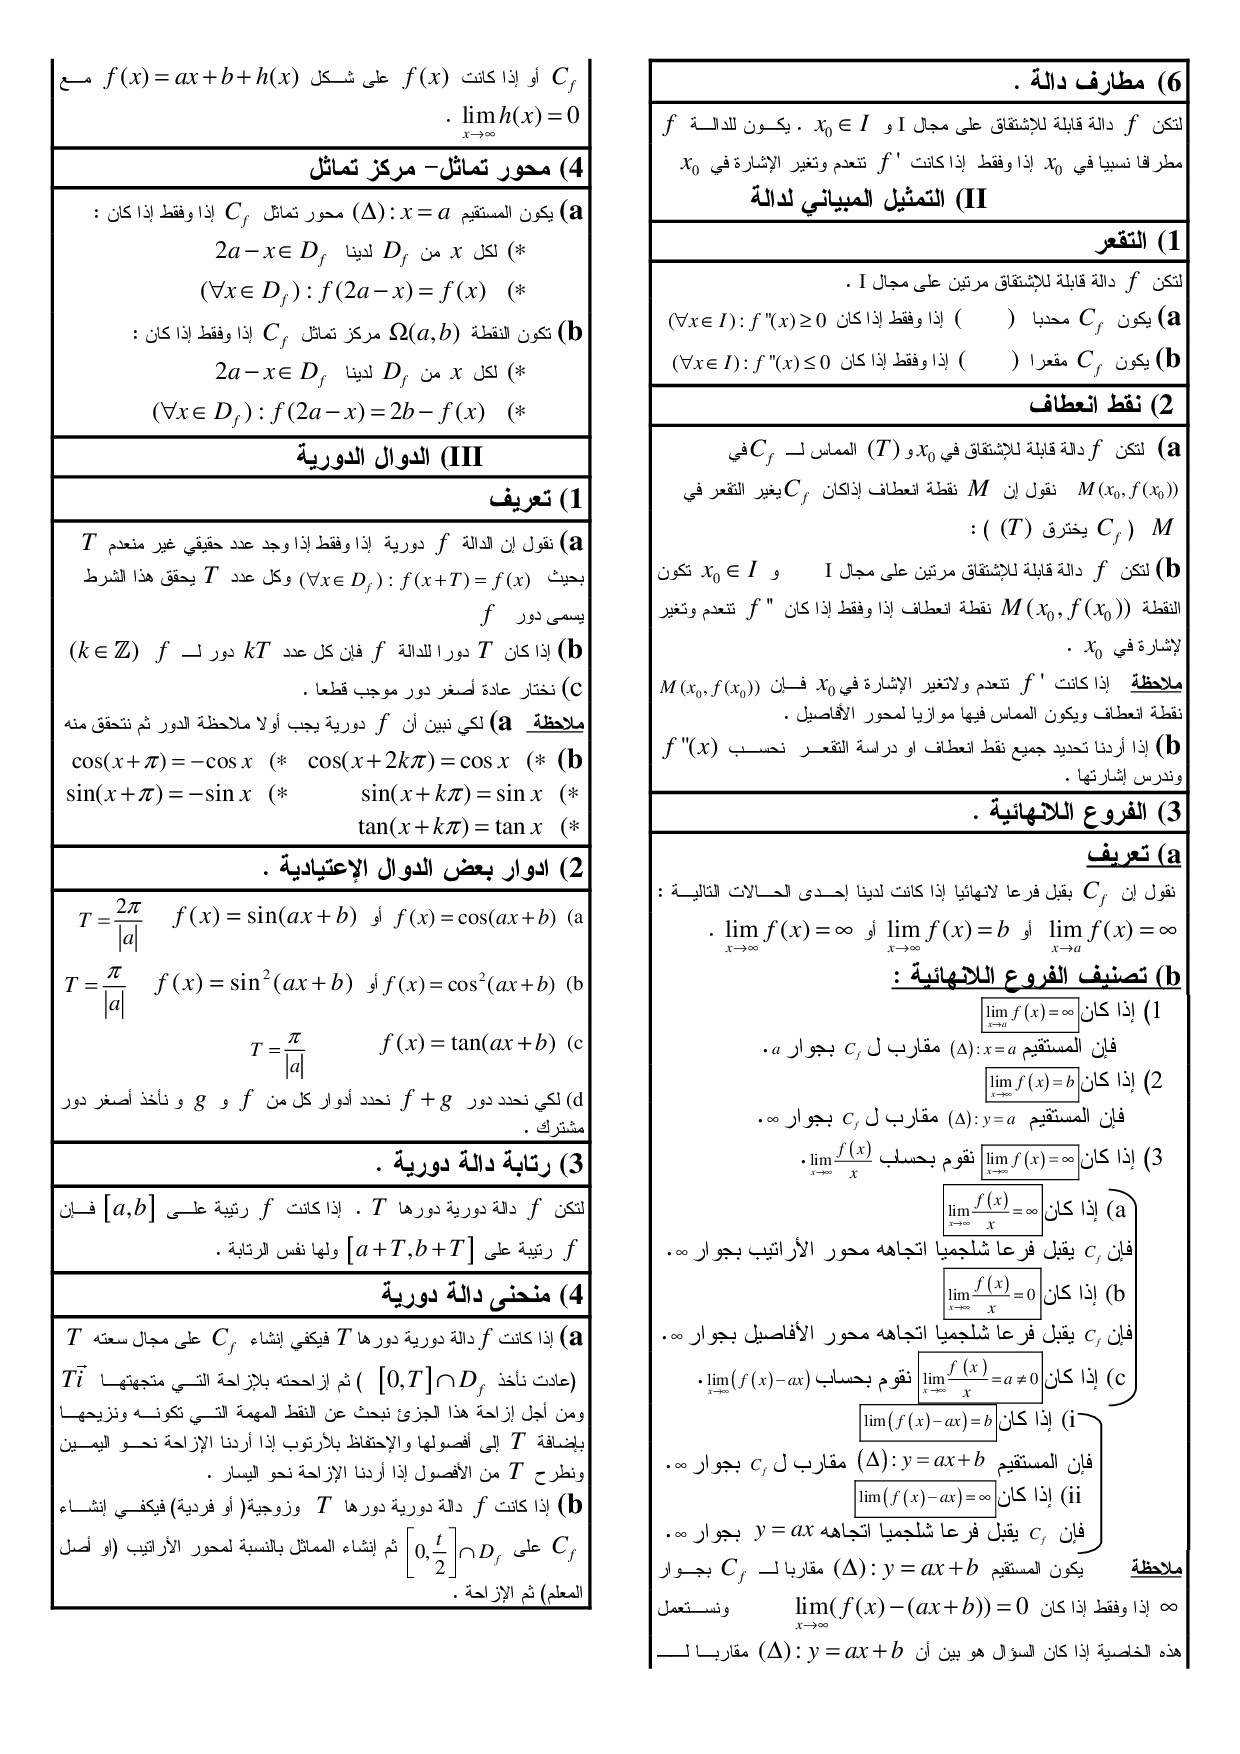 6) مطارف دالة .
لتكن f دالة قابلة للإشتقاق على مجال I و x₀ ∈ I . يكون للدالة f
مطرافا نسبيا في x₀ إذا وفقط إذا كانت f ' تنعدم وتغير الإشارة في x₀
II) التمثيل المبياني لدالة
1) التقعر
لتكن f دالة قابلة للإشتقاق مرتين على مجال I .
a) يكون C_f محدبا ( ) إذا وفقط إذا كان (∀x∈I): f ''(x) ≥ 0
b) يكون C_f مقعرا ( ) إذا وفقط إذا كان (∀x∈I): f ''(x) ≤ 0
2) نقط انعطاف
a) لتكن f دالة قابلة للإشتقاق في x₀ و (T) المماس لـ C_f في
M(x₀, f(x₀)) نقول إن M نقطة انعطاف إذاكان C_f يغير التقعر في
M ( C_f يخترق (T) ) :
b) لتكن f دالة قابلة للإشتقاق مرتين على مجال I و x₀ ∈ I تكون
النقطة M(x₀, f(x₀)) نقطة انعطاف إذا وفقط إذا كان f '' تنعدم وتغير
لإشارة في x₀ .
ملاحظة إذا كانت f ' تنعدم ولاتغير الإشارة في x₀ فإن M(x₀, f(x₀))
نقطة انعطاف ويكون المماس فيها موازيا لمحور الأفاصيل .
b) إذا أردنا تحديد جميع نقط انعطاف او دراسة التقعر نحسب f ''(x)
وندرس إشارتها .
3) الفروع اللانهائية .
a) تعريف
نقول إن C_f يقبل فرعا لانهائيا إذا كانت لدينا إحدى الحالات التالية :
lim_{x→a} f(x) = ∞ أو lim_{x→∞} f(x) = b أو lim_{x→∞} f(x) = ∞ .
b) تصنيف الفروع اللانهائية :
1) إذا كان lim_{x→a} f(x) = ∞
فإن المستقيم (Δ): x = a مقارب ل C_f بجوار a .
2) إذا كان lim_{x→∞} f(x) = b
فإن المستقيم (Δ): y = a مقارب ل C_f بجوار ∞ .
3) إذا كان lim_{x→∞} f(x) = ∞ نقوم بحساب lim_{x→∞} f(x)/x .
a) إذا كان lim_{x→∞} f(x)/x = ∞
فإن C_f يقبل فرعا شلجميا اتجاهه محور الأراتيب بجوار ∞ .
b) إذا كان lim_{x→∞} f(x)/x = 0
فإن C_f يقبل فرعا شلجميا اتجاهه محور الأفاصيل بجوار ∞ .
c) إذا كان lim_{x→∞} f(x)/x = a ≠ 0 نقوم بحساب lim_{x→∞} (f(x) − ax) .
i) إذا كان lim(f(x) − ax) = b
فإن المستقيم (Δ): y = ax + b مقارب ل C_f بجوار ∞ .
ii) إذا كان lim(f(x) − ax) = ∞
فإن C_f يقبل فرعا شلجميا اتجاهه y = ax بجوار ∞ .
ملاحظة يكون المستقيم (Δ): y = ax + b مقاربا لـ C_f بجوار
∞ إذا وفقط إذا كان lim_{x→∞} (f(x) − (ax + b)) = 0 ونستعمل
هذه الخاصية إذا كان السؤال هو بين أن (Δ): y = ax + b مقاربا لـ
C_f أو إذا كانت f(x) على شكل f(x) = ax + b + h(x) مع
lim_{x→∞} h(x) = 0 .
4) محور تماثل- مركز تماثل
a) يكون المستقيم (Δ): x = a محور تماثل C_f إذا وفقط إذا كان :
*) لكل x من D_f لدينا 2a − x ∈ D_f
*) (∀x∈D_f): f(2a − x) = f(x)
b) تكون النقطة Ω(a,b) مركز تماثل C_f إذا وفقط إذا كان :
*) لكل x من D_f لدينا 2a − x ∈ D_f
*) (∀x∈D_f): f(2a − x) = 2b − f(x)
III) الدوال الدورية
1) تعريف
a) نقول إن الدالة f دورية إذا وفقط إذا وجد عدد حقيقي غير منعدم T
بحيث (∀x∈D_f): f(x+T) = f(x) وكل عدد T يحقق هذا الشرط
يسمى دور f
b) إذا كان T دورا للدالة f فإن كل عدد kT دور لـ f (k ∈ ℤ)
c) نختار عادة أصغر دور موجب قطعا .
ملاحظة a) لكي نبين أن f دورية يجب أولا ملاحظة الدور ثم نتحقق منه
b) *) cos(x + 2kπ) = cos x *) cos(x + π) = −cos x
*) sin(x + kπ) = sin x *) sin(x + π) = −sin x
*) tan(x + kπ) = tan x
2) ادوار بعض الدوال الإعتيادية .
a) f(x) = cos(ax + b) أو f(x) = sin(ax + b) T = 2π/|a|
b) f(x) = cos²(ax + b) أو f(x) = sin²(ax + b) T = π/|a|
c) f(x) = tan(ax + b) T = π/|a|
d) لكي نحدد دور f + g نحدد أدوار كل من f و g و نأخذ أصغر دور
مشترك .
3) رتابة دالة دورية .
لتكن f دالة دورية دورها T . إذا كانت f رتيبة على [a,b] فإن
f رتيبة على [a+T, b+T] ولها نفس الرتابة .
4) منحنى دالة دورية
a) إذا كانت f دالة دورية دورها T فيكفي إنشاء C_f على مجال سعته T
(عادت نأخذ [0,T] ∩ D_f ) ثم إزاحته بلإزاحة التي متجهتها Ti⃗
ومن أجل إزاحة هذا الجزئ نبحث عن النقط المهمة التي تكونه ونزيحها
بإضافة T إلى أفصولها والإحتفاظ بلأرتوب إذا أردنا الإزاحة نحو اليمين
ونطرح T من الأفصول إذا أردنا الإزاحة نحو اليسار .
b) إذا كانت f دالة دورية دورها T وزوجية( أو فردية) فيكفي إنشاء
C_f على [0, t/2] ∩ D_f ثم إنشاء المماثل بالنسبة لمحور الأراتيب (او أصل
المعلم) ثم الإزاحة .